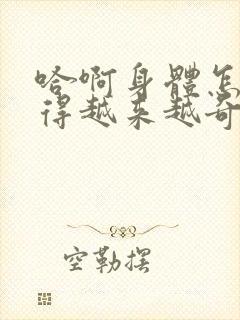 哈啊身體怎
得越来越奇
空勒摆